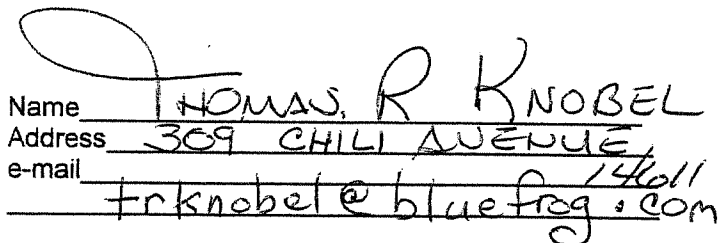 Name THOMAS. R KNOBEL
Address 309 CHILI AVENUE
e-mail 14611
trknobel@bluefrog.com